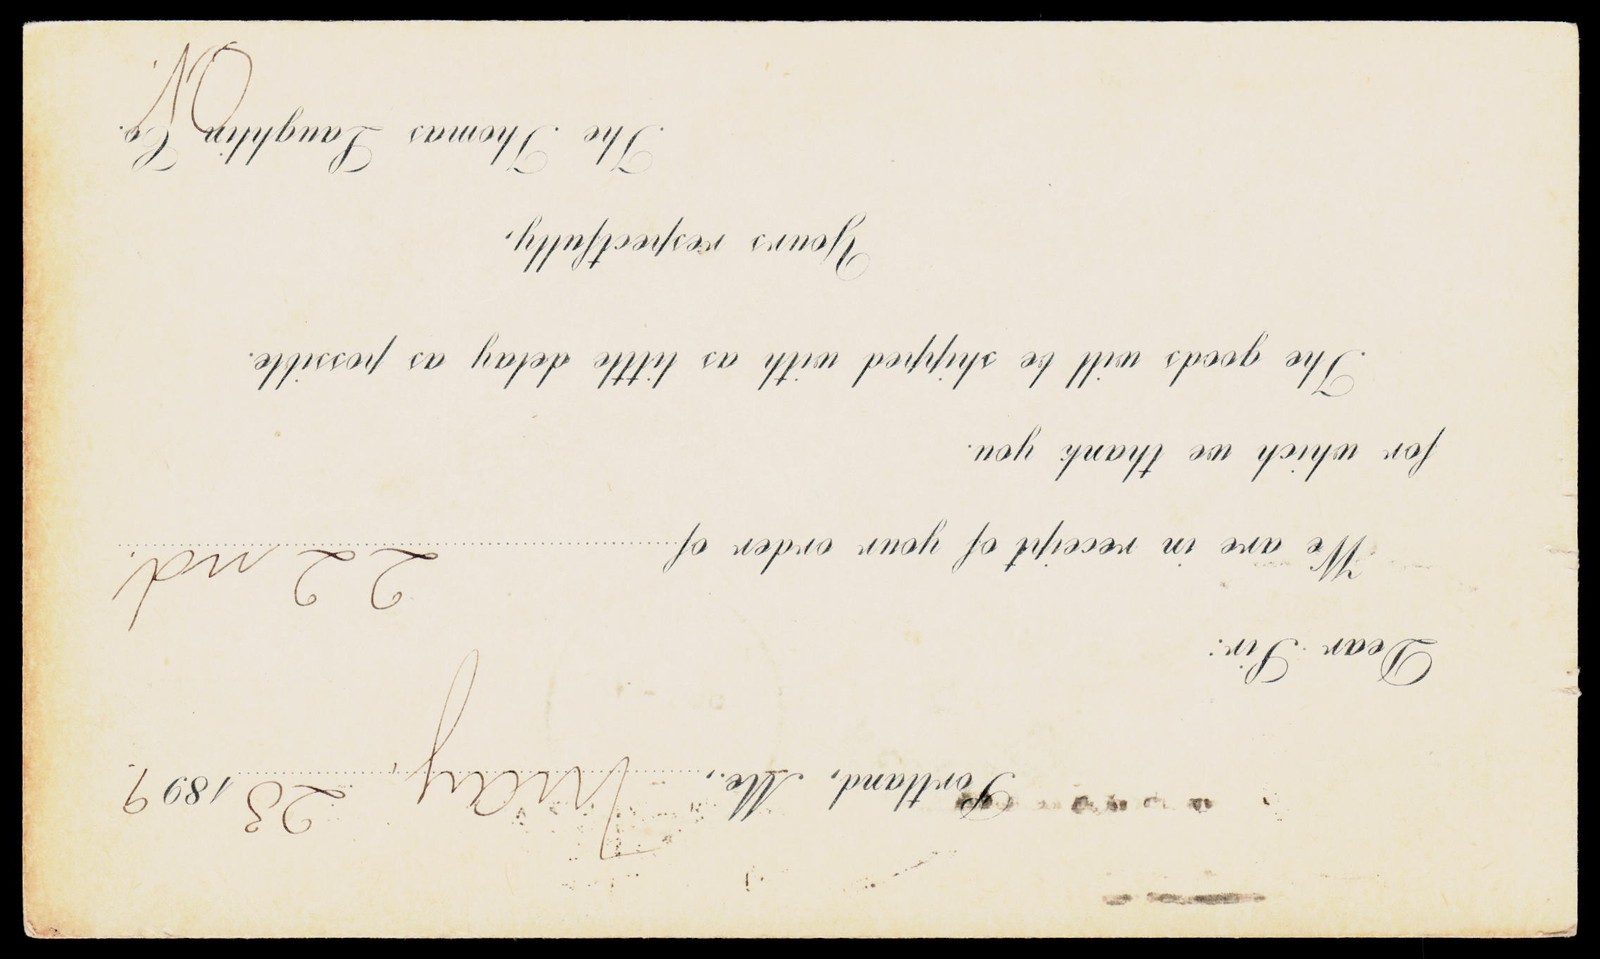 Portland, Me., May, 23 1899.
Dear Sir:
We are in receipt of your order of 22nd.
for which we thank you.
The goods will be shipped with as little delay as possible.
Yours respectfully,
The Thomas Laughlin Co.